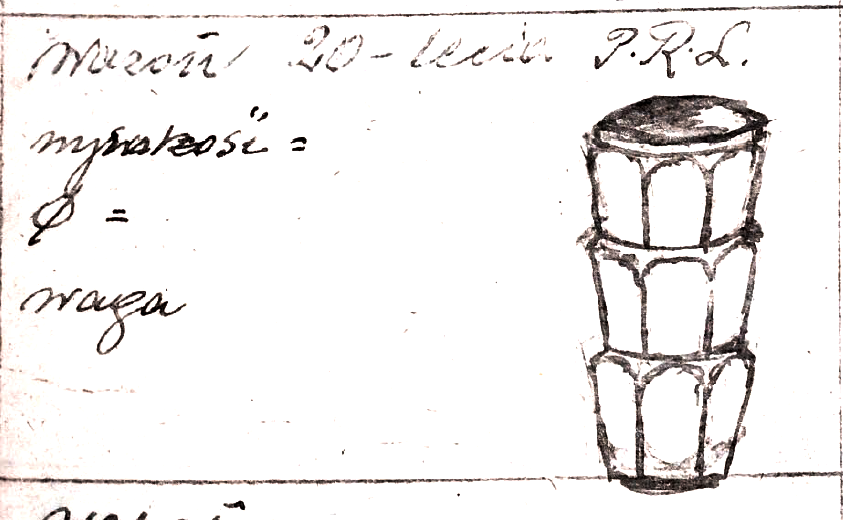 Wazon 20-lecia P.R.L.
wysokość =
Ø =
waga